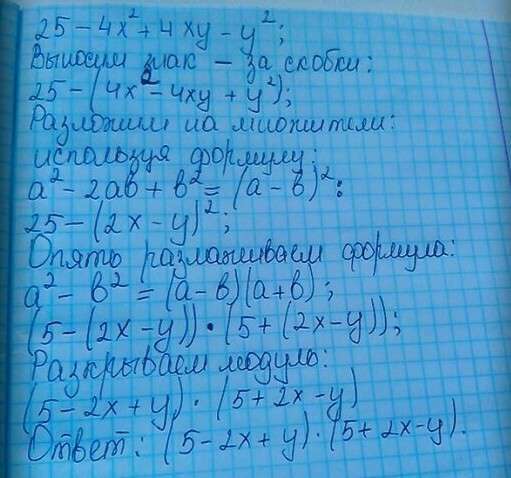 25 − 4x² + 4xy − y²;
Выносим знак − за скобки:
25 − (4x² − 4xy + y²);
Разложим на множители:
используя формулу:
a² − 2ab + b² = (a − b)²:
25 − (2x − y)²;
Опять разлаживаем формула:
a² − b² = (a − b)(a + b);
(5 − (2x − y)) · (5 + (2x − y));
Разкрываем модуль:
(5 − 2x + y) · (5 + 2x − y)
Ответ: (5 − 2x + y) · (5 + 2x − y).